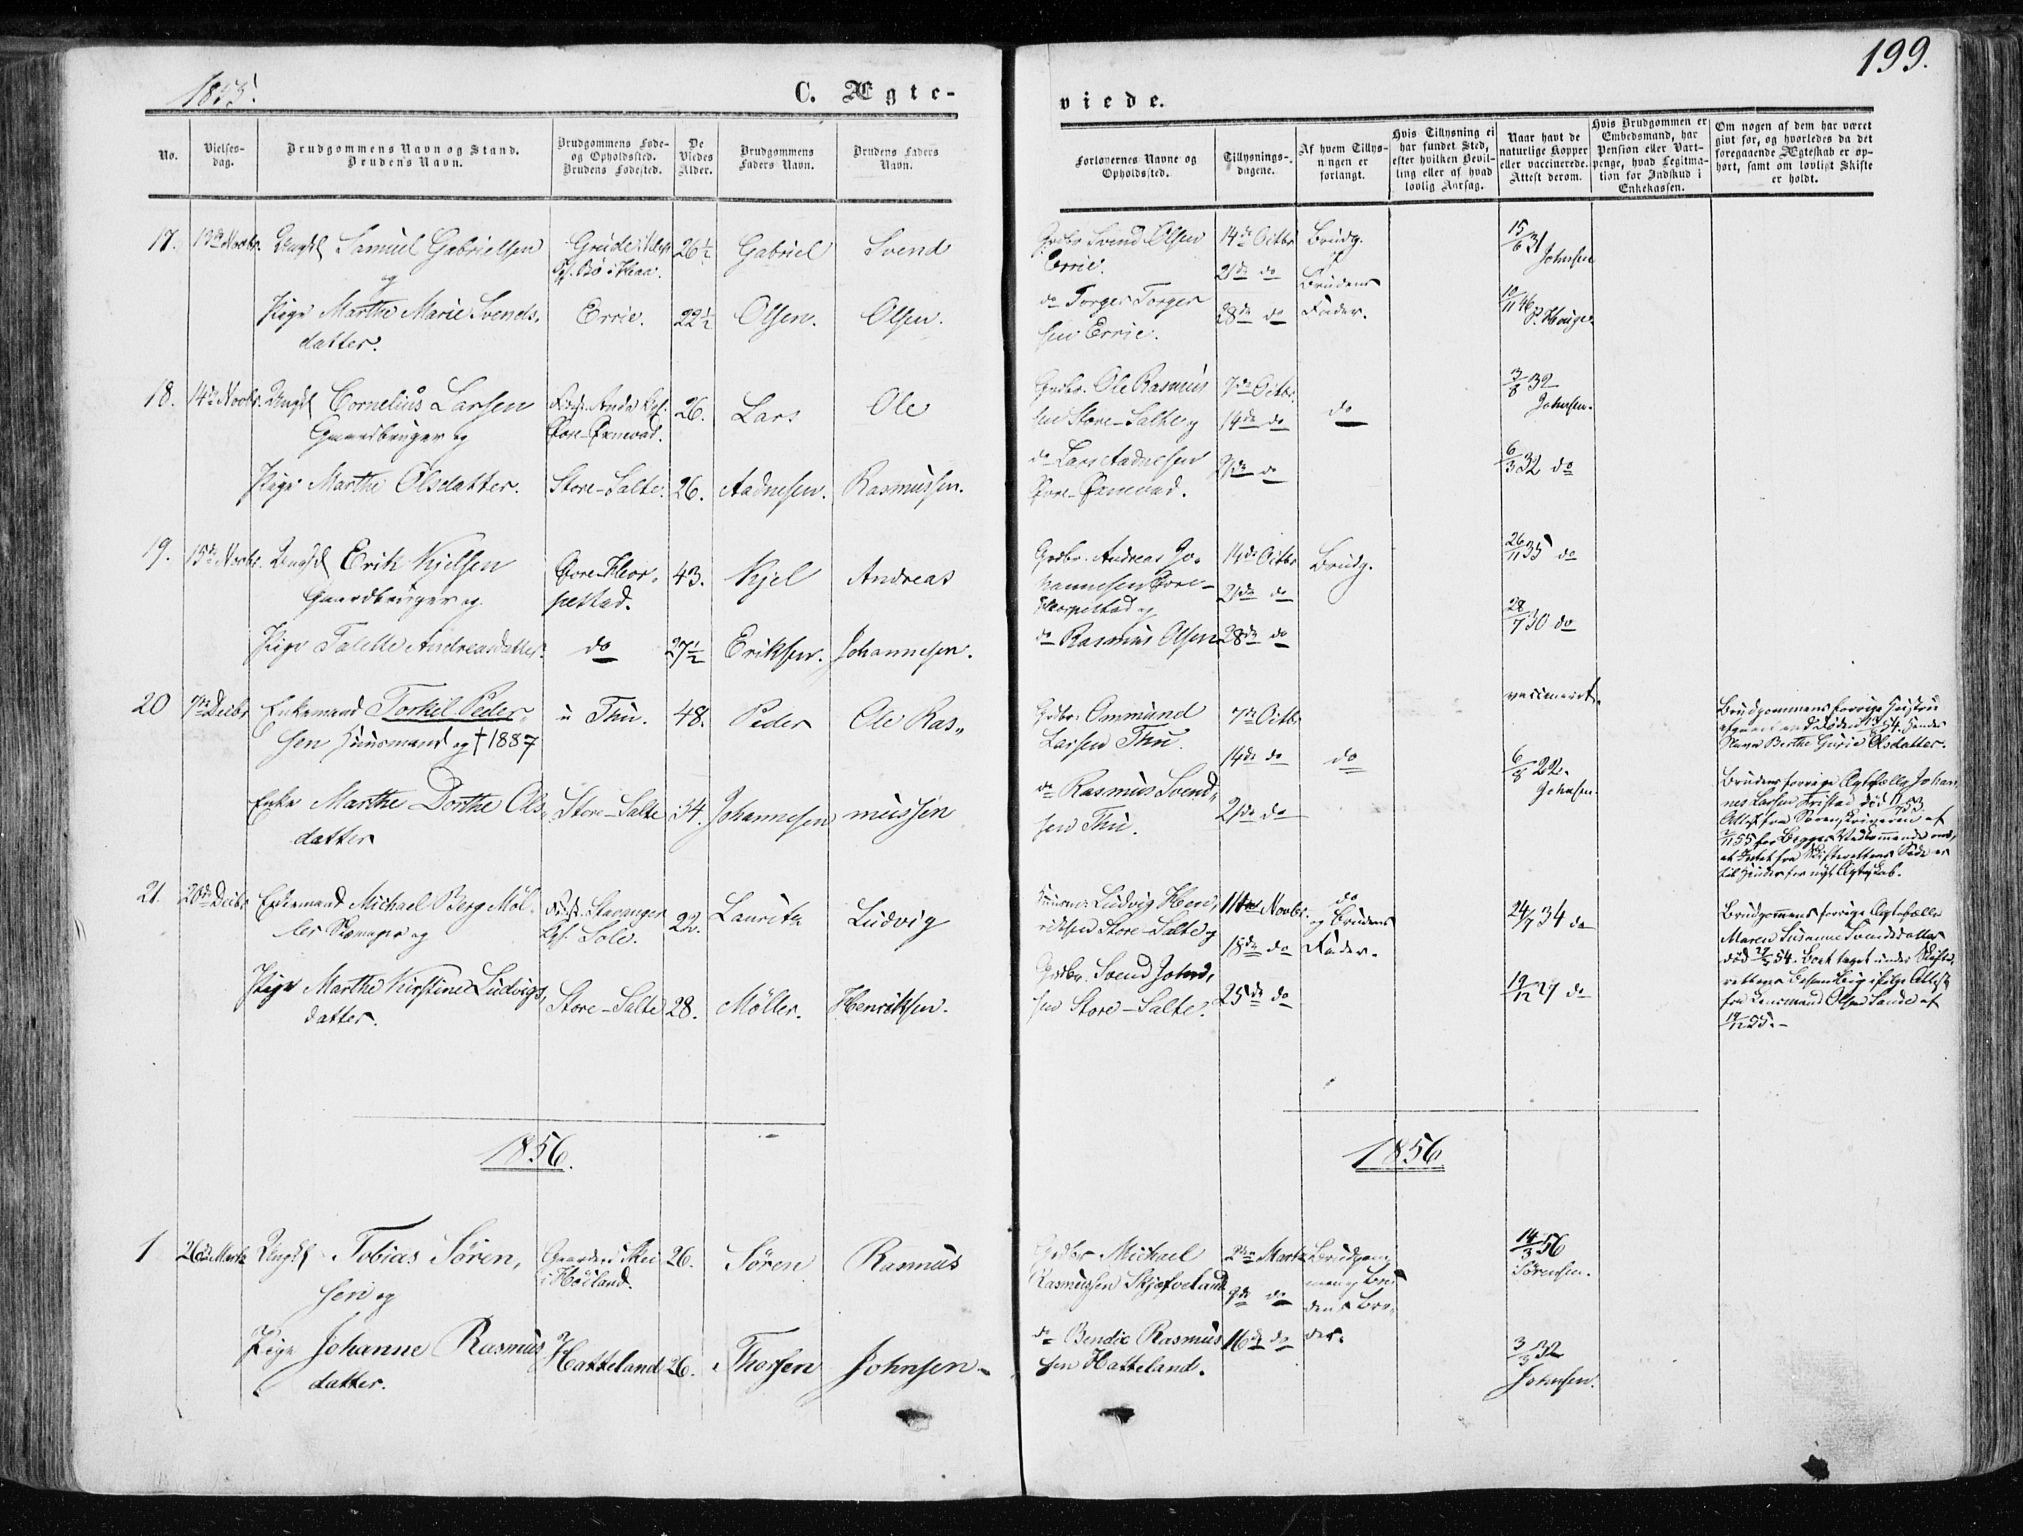 199.
1855.
C. Ægte-
viede.
No.
Vielses-
dag.
Brudgommens Navn og Stand.
Brudens Navn.
Brudgommens Føde-
og Opholdssted.
Brudens Fødested.
De
Viedes
Alder.
Brudgommens
Faders Navn.
Brudens Faders
Navn.
Forlovernes Navne og
Opholdssted.
Tillysnings-
dagene.
Af hvem Tillys-
ningen er
forlangt.
Hvis Tillysning ei
har fundet Sted,
efter hvilken Bevil-
ling eller af hvad
lovlig Aarsag.
Naar havt de
naturlige Kopper
eller vaccinerede.
Attest derom.
Hvis Brudgommen er
Embedsmand, har
Pension eller Vart-
penge, hvad Legitima-
tion for Indskud i
Enkekassen.
Om nogen af dem har været
givt før, og hvorledes da det
foregaaende Ægteskab er op-
hørt, samt om lovligt Skifte
er holdt.
17. 13de Novbr. Ungkl Samuel Gabrielsen
og
Pige Marthe Marie Svends-
datter.
Errie.
26½
22½
Gabriel
Olsen.
Svend
Olsen.
Grdbr Svend Olsen
Errie.
do Torger Torger
sen Errie.
14de Octbr
21de do
28de do
Brudg.
og
Brudens
Fader.
15/6 31
Johnsen
10/11 46
P. Hauge.
18. 14de Novbr. Ungkl Cornelius Larsen
Gaardbruger og
Pige Marthe Olsdatter.
Store-Salte.
26.
26.
Lars
Aadnesen.
Ole
Rasmussen.
Grdbr. Ole Rasmus
sen Store-Salte og
do Lars Aadnesen
7de Octbr.
14de do
21de do
do
3/8 32
Johnsen.
6/3 32 do
19. 15de Novbr. Ungkl Erik Kjelsen
Gaardbruger og
Pige Talette Andreasdatter.
do
43.
27½
Kjel
Eriksen.
Andreas
Johannesen.
Grdbr. Andreas Jo-
hannesen
do Rasmus Olsen
14de Octbr
21de do
28de do
Brudg.
26/11 35 do
28/7 30 do
20 7de Decbr Enkemand Torkel Peder-
sen Huusmand og † 1887
Enke Marthe Dorthe Ols-
datter
Thu.
Store-Salte
48.
34.
Peder
Johannesen
Ole Ras-
mussen
Grdbr. Ommund
Larsen Thu.
do Rasmus Svend-
sen Thu.
7de Octbr
14de do
21de do
do
vaccineret.
6/8 22.
Johnsen.
Brudgommens forrige Hustru
Navn Berthe Gurie Olsdatter.
Brudens forrige Ægtefælle Johan-
nes Larsen
21. 20de Decbr Enkemand Michael Berg Møl-
ler og
Pige Marthe Kirstine Ludvigs-
datter.
Stavanger
Sole.
Store-Salte
22.
28.
Lauritz
Møller.
Ludvig
Henriksen.
Ludvig Hen-
riksen Store-Salte og
Grdbr. Svend John-
sen Store-Salte.
11te Novbr.
18de do
25de do
do
og Brudens
Fader.
24/7 34 do
19/12 27 do
Brudgommens forrige Ægtefælle
Maren Susanne Svendsdatter
1856.
1856.
1 26de Marts Ungkl Tobias Søren-
sen og
Pige Johanne Rasmus
datter.
i Høiland.
Hatteland
26.
26.
Søren
Thorsen
Rasmus
Johnsen
Grdbr Michael
Rasmussen Skjefveland
do Bendic Rasmus
sen Hatteland.
2den Marts
9de do
16de do
Brudgom-
men og Bru
dens Bro-
der.
14/3 56
Sørensen.
3/3 32
Johnsen.